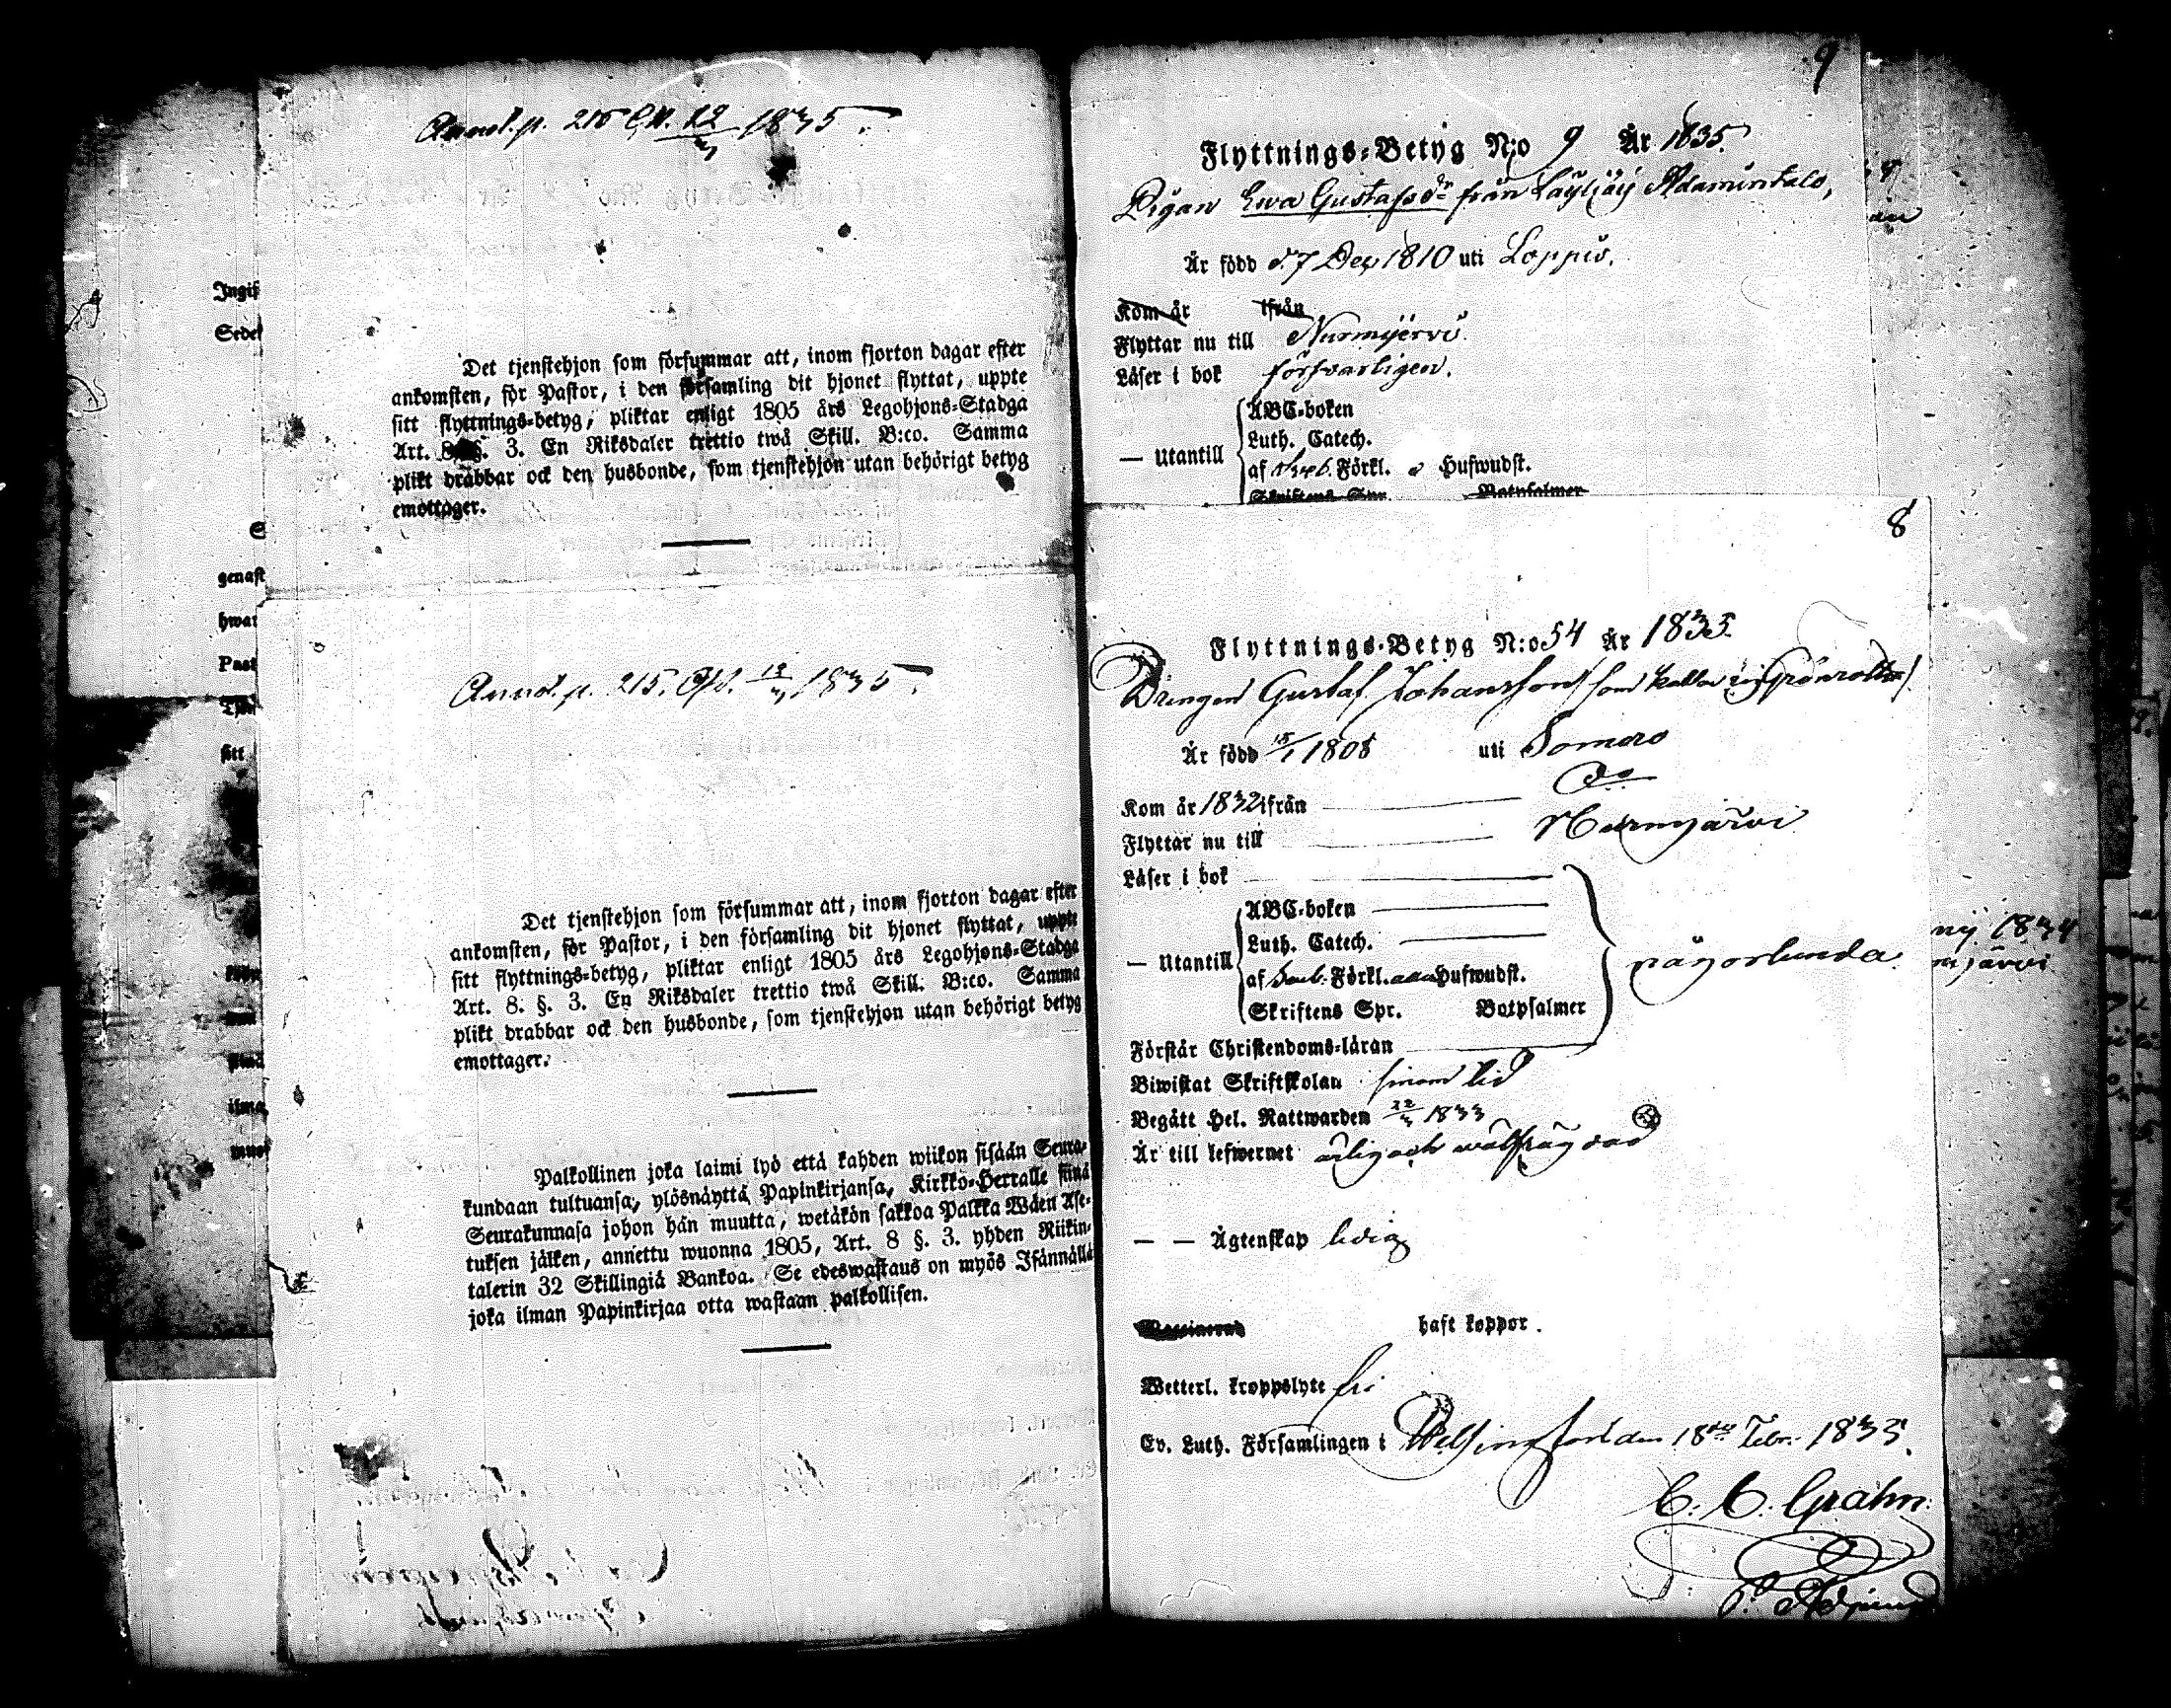 Annot. p. 215 12/3 1835.
Det tjenstehjon som försummar att, inom fjorton dagar efter
ankomsten, för Pastor, i den församling dit hjonet flyttat, uppte
sitt flyttnings-betyg, pliktar enligt 1805 års Legohjons-Stadga
Art. 8 §. 3. En Riksdaler trettio twå Skill. B:co. Samma
plikt drabbar ock den husbonde, som tjenstehjon utan behörigt betyg
emottager.
Annot. p. 215. 12/3 1835.
Det tjenstehjon som försummar att, inom fjorton dagar efter
ankomsten, för Pastor, i den församling dit hjonet flyttat, uppte
sitt flyttnings-betyg, pliktar enligt 1805 års Legohjons-Stadga
Art. 8. §. 3. En Riksdaler trettio twå Skill. B:co. Samma
plikt drabbar ock den husbonde, som tjenstehjon utan behörigt betyg
emottager.
Palkollinen joka laimi lyö että kahden wiikon sisään Seura-
kundaan tultuansa, ylösnäyttä Papinkirjansa, Kirkko-Herralle siinä
Seurakunnasa johon hän muutta, wetäkön sakkoa Palkka Wäen Ase-
tuksen jälken, annettu wuonna 1805, Art. 8 §. 3. yhden Riikin-
talerin 32 Skillingiä Bankoa. Se edeswastaus on myös Isännällä
joka ilman Papinkirjaa otta wastaan palkollisen.
9
Flyttnings-Betyg N:o 9 År 1835.
Pigan Ewa Gustafsdr från Läyljäij Adamintalo,
Är född d. 7 Dec 1810 uti Loppis.
Kom år ifrån
Flyttar nu till Nurmijervi.
Läser i bok försvarligen.
ABC-boken
Luth. Catech.
— Utantill af Sveb. Förkl. Hufwudst.
Skriftens Spr. Botpsalmer
8
Flyttnings-Betyg N:o 54 År 1835.
Drengen Gustaf Johansson som kallar sig Grönroth
Är född 15/1 1808 uti Somero
Kom år 1832 ifrån do
Flyttar nu till Nurmijärvi
Läser i bok
ABC-boken
Luth. Catech.
— Utantill af Sveb. Förkl. Hufwudst. någorlunda
Skriftens Spr. Botpsalmer
Förstår Christendoms-läran
Biwistat Skriftskolan sinom tid
Begått Hel. Nattwarden 22/3 1833
Är till lefwernet ärlig och wälfrägdad
— — Ägtenskap ledig
haft koppor.
Wetterl. kroppslyte fri
Ev. Luth. Församlingen i Helsingfors den 18de Febr. 1835.
C. C. Grahn.